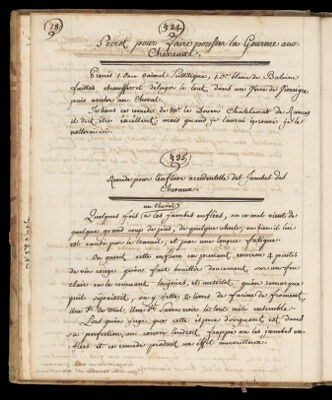 78
§ 34.
Secret pour faire pousser la Gourme aux
Chevaux.
Prenés 1. Once 1. Once blanc de Baleine
faittes chauffer et delayer le tout, dans une
puis avaler au Cheval.
Je tiens ce remede de Mr. le de
il doit être excellent; mais quand je l'aurai éprouvé je le
noterai ici.
§ 35.
Remede pour l'enflure accidentelle des Jambes des
Chevaux.
un cheval
Quelques fois a les jambes enflées, ou ce mal vient de
quelque grand coup de pied, de quelque chute, ou bien il lui
est causé par le travail, et par une longue fatigue.
On guerit cette enflure en prenant, environ 4 pintes
de vin rouge qu'on fait bouillir doucement sur un feu
clair en le remuant toujours, et aussitôt qu'on remarque
qu'il s'épaissit, on y jette 2 livres de farine de froment,
Une lb. de Miel, Une lb. Savon noir le tout mêlé ensemble.
Lors qu'on juge que cette espece d'onguent est dans
sa perfection, on couvre l'endroit frappé ou les jambes en-
flées et ce remede produit un effet merveilleux.